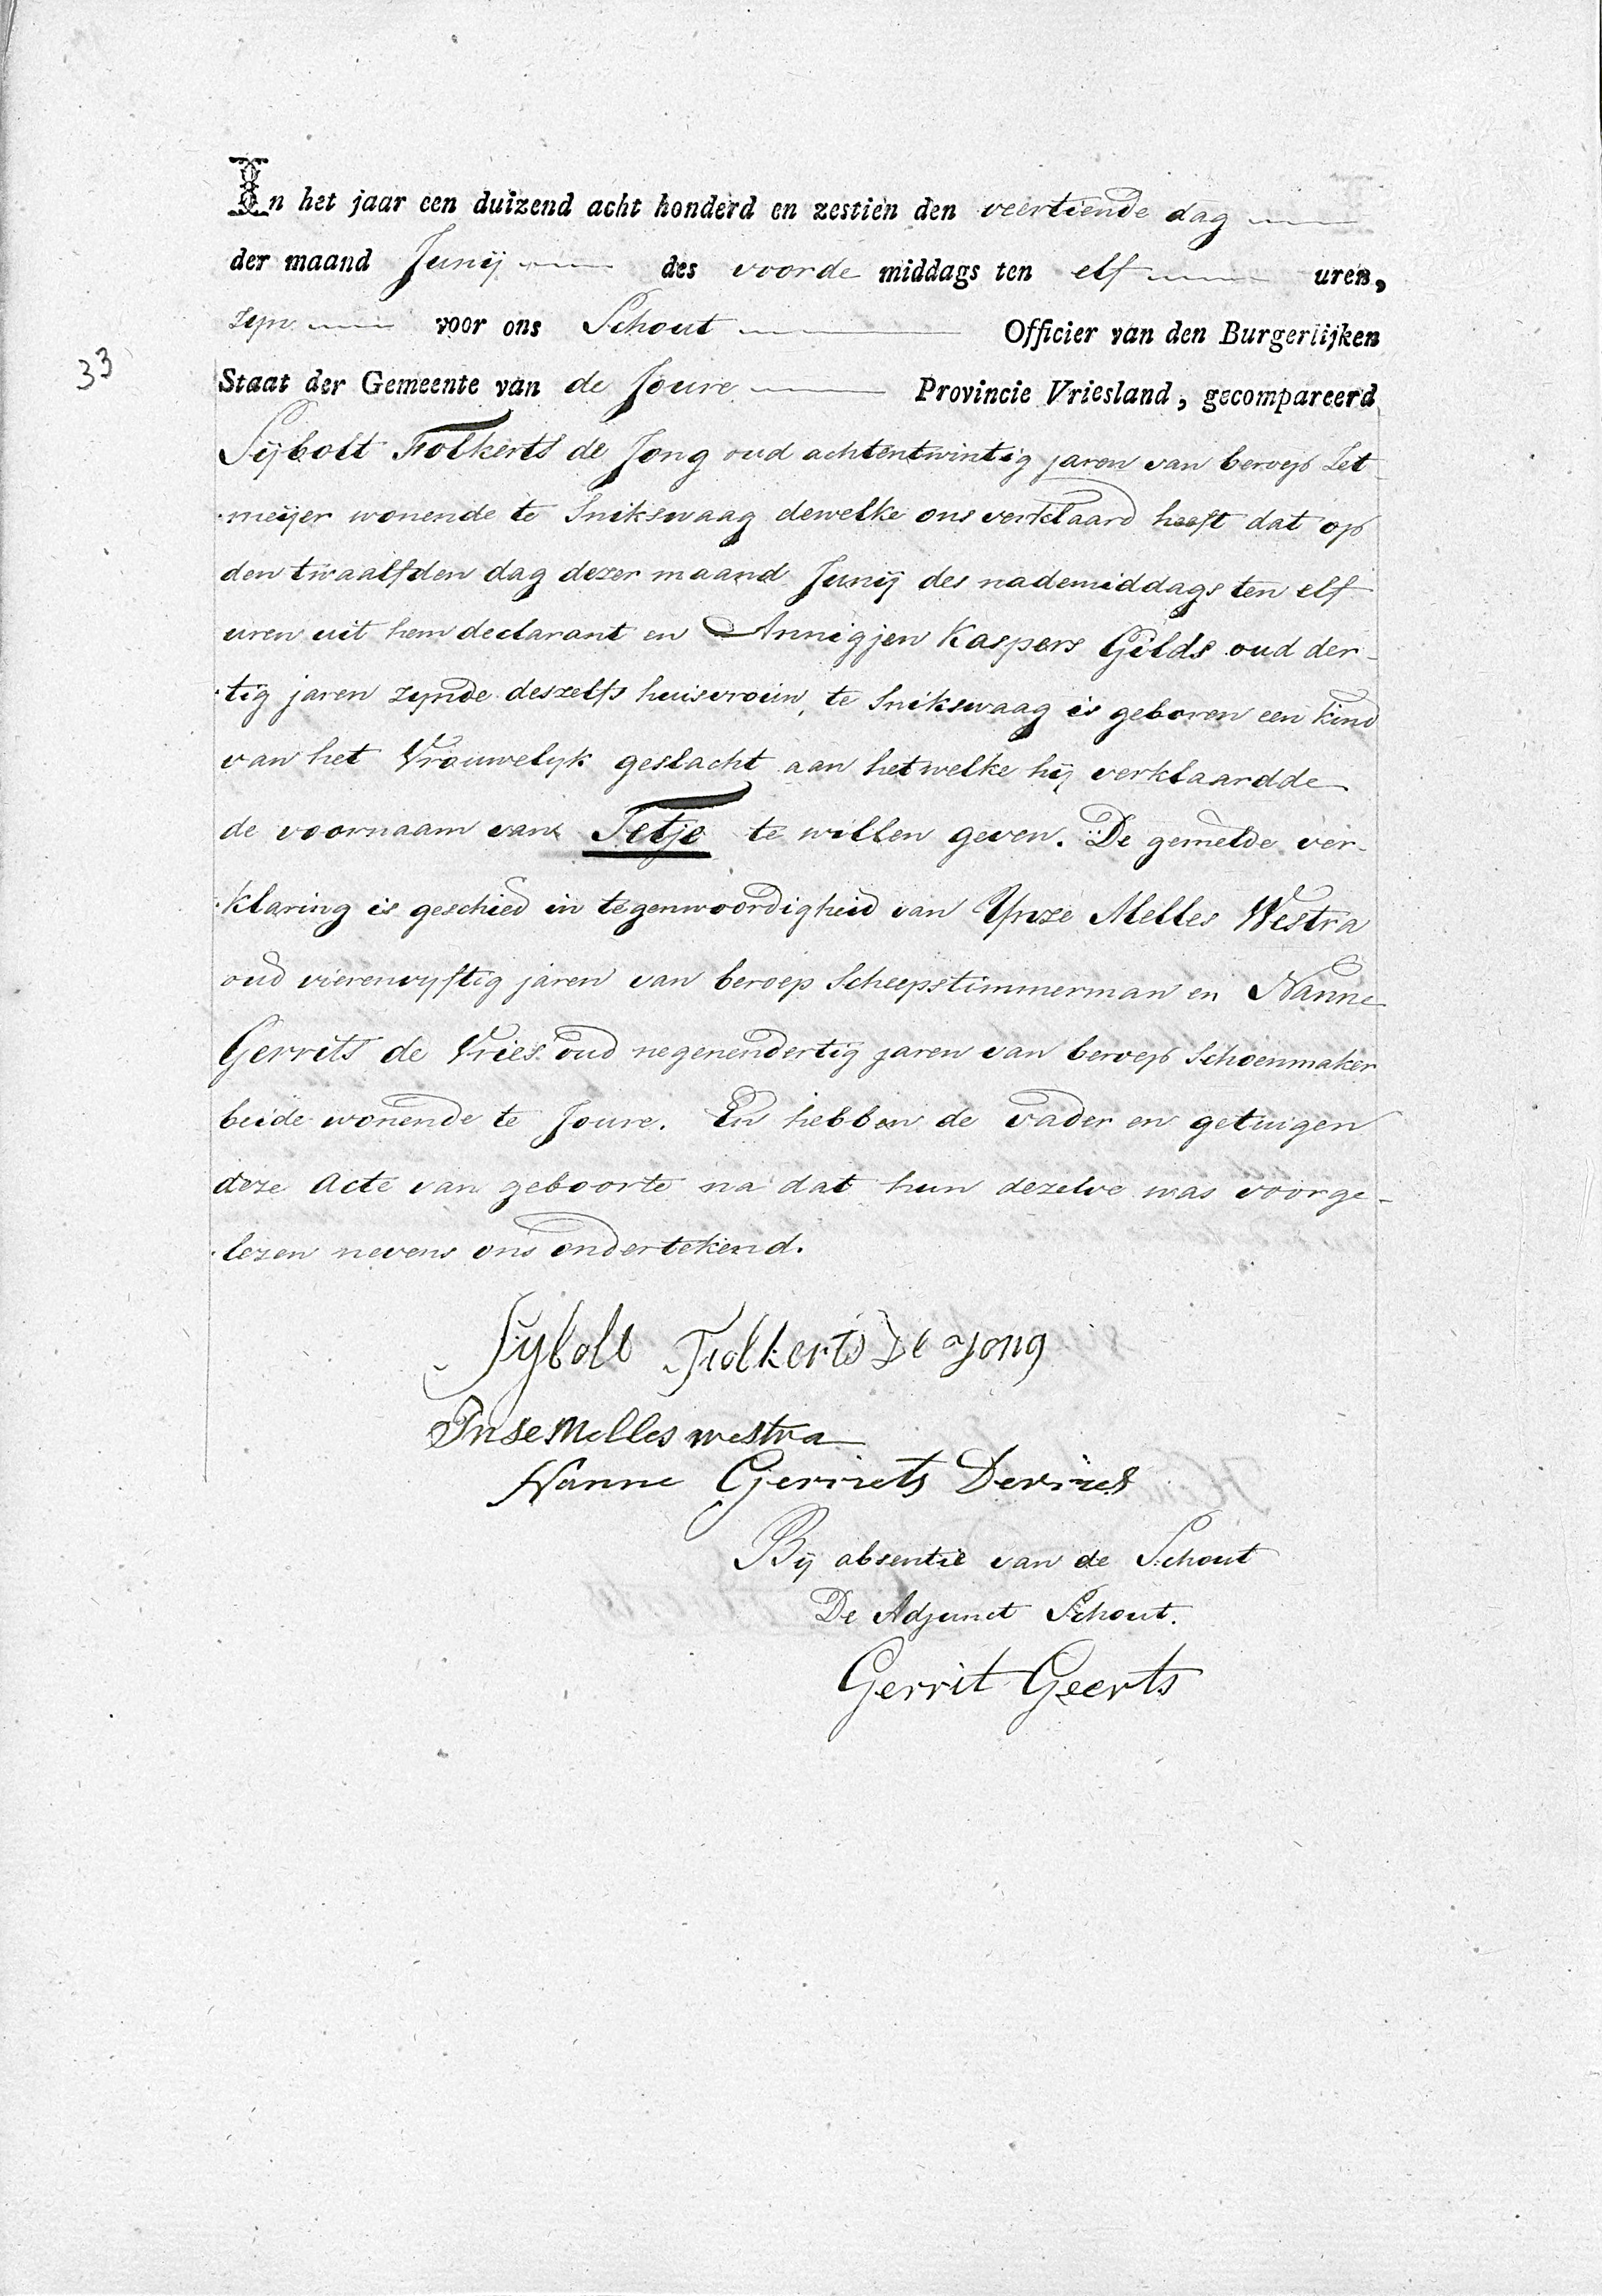 In het jaar een duizend acht honderd en zestien den veertiende dag
der maand Junij des voorde middags ten elf uren,
zyn voor ons Schout Officier van den Burgerlijken
33
Staat der Gemeente van de Joure Provincie Vriesland, gecompareerd
Sijbolt Folkerts de Jong oud achtentwintig jaren van beroep Let-
meijer wonende te Snikswaag dewelke ons verklaard heeft dat op
den twaalfden dag dezer maand Junij des nademiddags ten elf
uren uit hem declarant en Annigjen Kaspers Gilds oud der-
tig jaren zynde deszelfs huisvrouw, te Snikswaag is geboren een kind
van het Vrouwelyk geslacht aan hetwelke hij verklaardde
de voornaam van Tetje te willen geven. De gemelde ver-
klaring is geschied in tegenwoordigheid van Ynze Melles Westra
oud vierenvyftig jaren van beroep Scheepstimmerman en Nanne
Gerrits de Vries oud negenendertig jaren van beroep Schoenmaker
beide wonende te Joure. En hebben de vader en getuigen
deze Acte van geboorte na dat hun dezelve was voorge-
lezen nevens ons ondertekend.
Sybolt Folkerts De Jong
Inse Melles westra
Nanne Gerriets Devries
Bij absentie van de Schout
De Adjunct Schout.
Gerrit Geerts